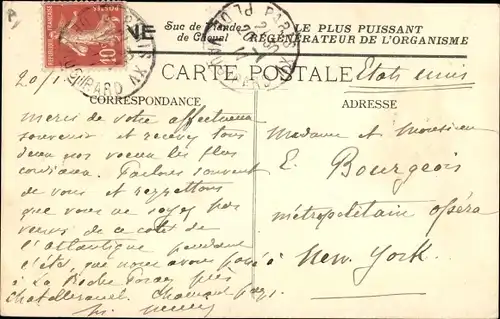 Suc de Viande
de Cheval
LE PLUS PUISSANT
RÉGÉNÉRATEUR DE L'ORGANISME
CARTE POSTALE
Etats unis
CORRESPONDANCE
ADRESSE
REPUBLIQUE FRANÇAISE
10
POSTES
20/1
Merci de votre affectueux
souvenir et recevez tous
deux nos voeux les plus
cordiaux. Parlons souvent
de vous et regrettons
que vous ne soyez pas
venus de ce coté de
l'atlantique pendant
l'été, que nous avons passé à
à La Roche Posay près
Chatellerault.
Madame et Monsieur
E. Bourgeois
métropolitain opéra
New York.